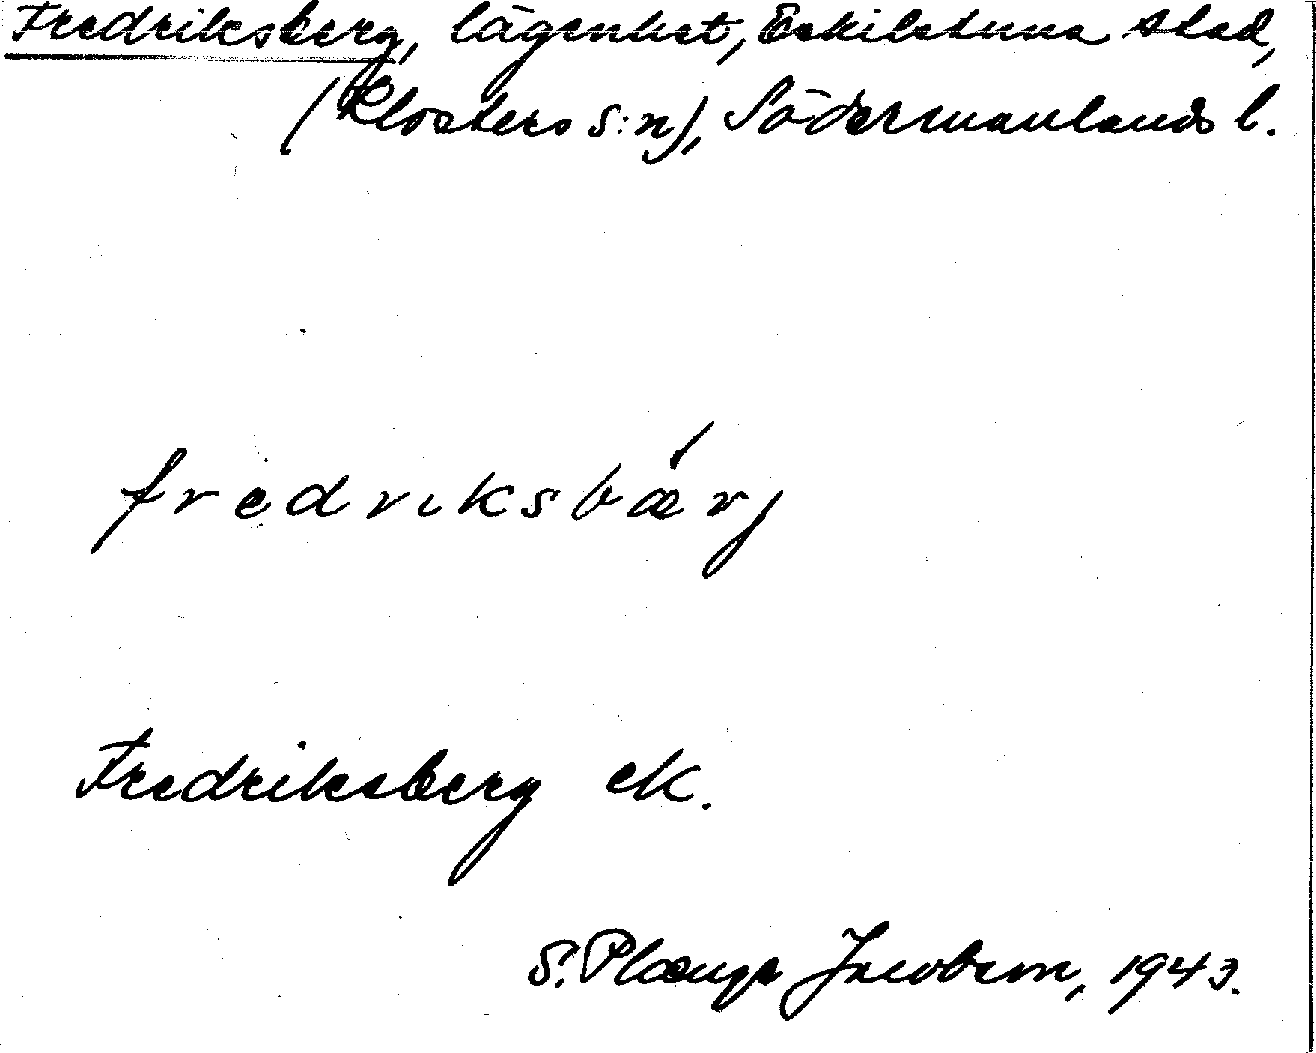 Fredriksberg, lägenhet, Eskilstuna stad,
(Klosters s:n), Södermanlands l.
fredriksbǽrj
Fredriksberg ek.
S. Plænge Jacobson, 1943.